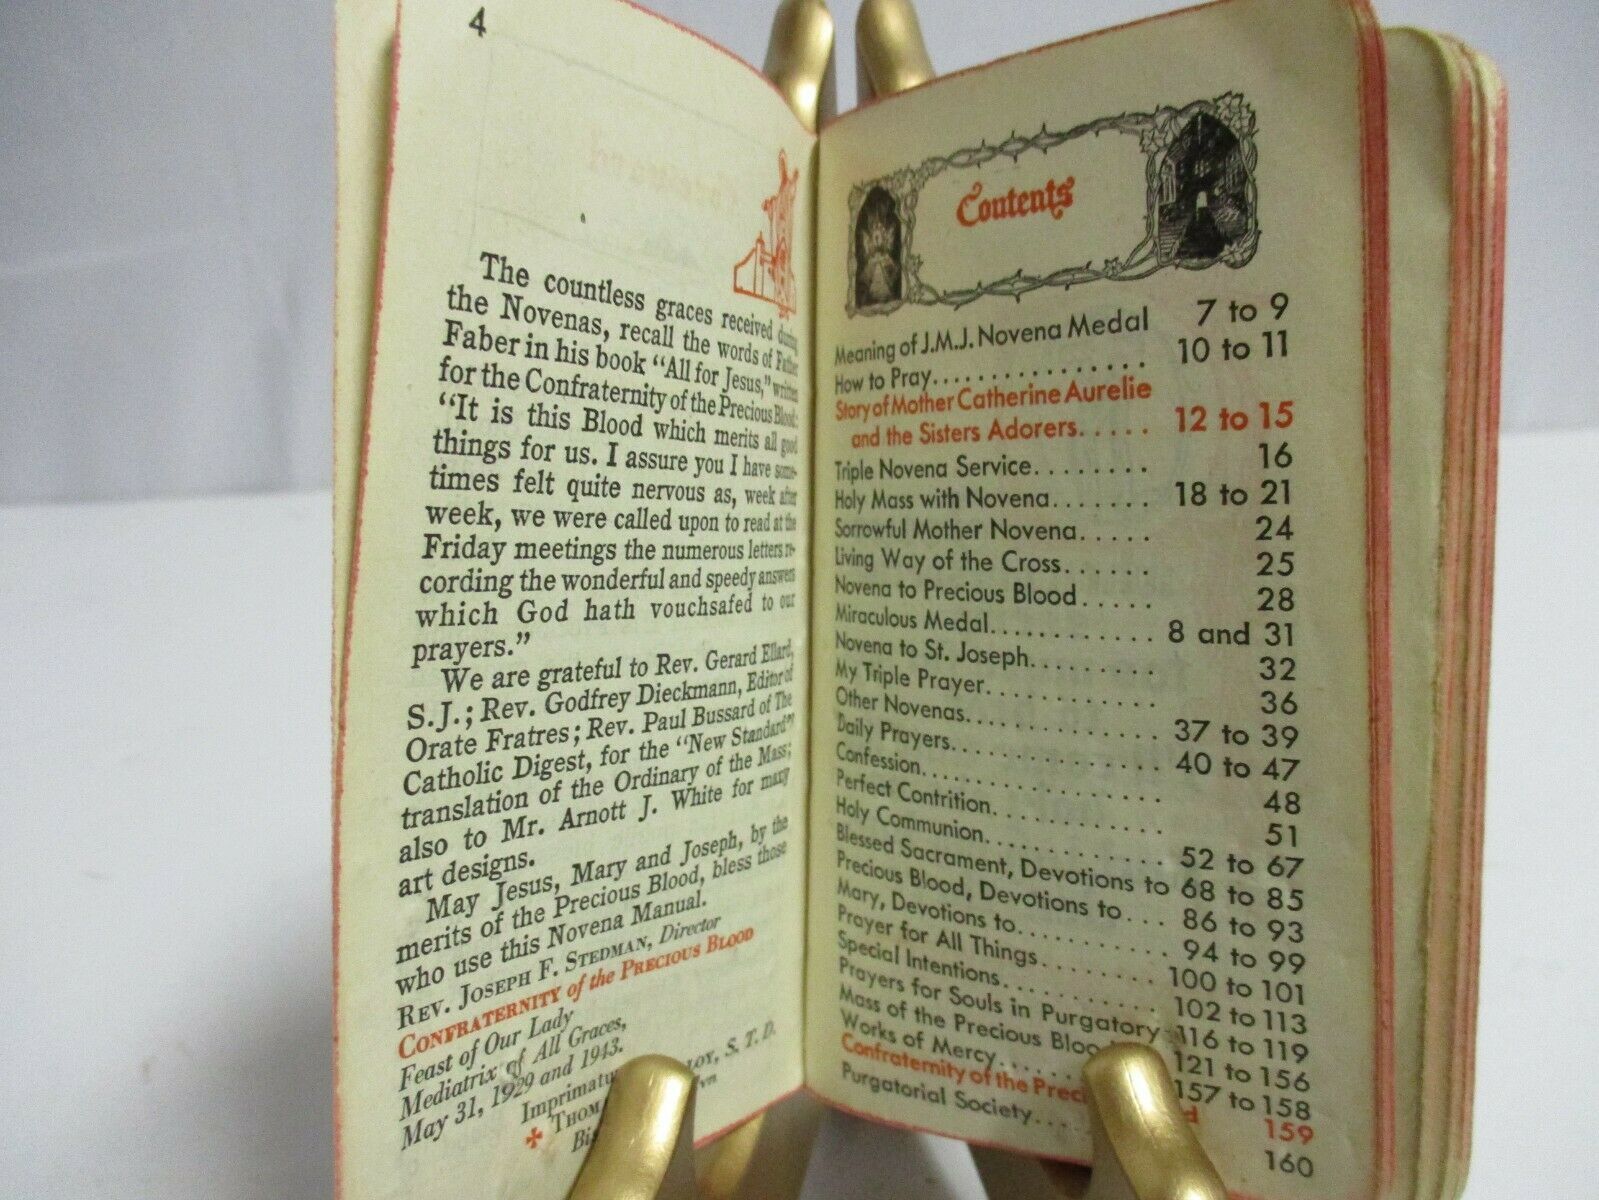 4
The countless graces received during
the Novenas, recall the words of Father
Faber in his book "All for Jesus," written
for the Confraternity of the Precious Blood:
"It is this Blood which merits all good
things for us. I assure you I have some-
times felt quite nervous as, week after
week, we were called upon to read at the
Friday meetings the numerous letters re-
cording the wonderful and speedy answers
which God hath vouchsafed to our
prayers."
We are grateful to Rev. Gerard Ellard,
S.J.; Rev. Godfrey Dieckmann, Editor of
Orate Fratres; Rev. Paul Bussard of The
Catholic Digest, for the "New Standard"
translation of the Ordinary of the Mass;
also to Mr. Arnott J. White for many
art designs.
May Jesus, Mary and Joseph, by the
merits of the Precious Blood, bless those
who use this Novena Manual.
REV. JOSEPH F. STEDMAN, Director
CONFRATERNITY of the PRECIOUS BLOOD
Feast of Our Lady
Mediatrix of All Graces,
May 31, 1929 and 1943.
S. T. D.
Contents
Meaning of J.M.J. Novena Medal 7 to 9
How to Pray................. 10 to 11
Story of Mother Catherine Aurelie
and the Sisters Adorers..... 12 to 15
Triple Novena Service........ 16
Holy Mass with Novena....... 18 to 21
Sorrowful Mother Novena..... 24
Living Way of the Cross...... 25
Novena to Precious Blood..... 28
Miraculous Medal............ 8 and 31
Novena to St. Joseph......... 32
My Triple Prayer............ 36
Other Novenas............. 37 to 39
Daily Prayers.............. 40 to 47
Confession................ 48
Perfect Contrition........... 51
Holy Communion............ 52 to 67
Blessed Sacrament, Devotions to 68 to 85
Precious Blood, Devotions to... 86 to 93
Mary, Devotions to........... 94 to 99
Prayer for All Things........ 100 to 101
Special Intentions............ 102 to 113
Prayers for Souls in Purgatory 116 to 119
Mass of the Precious 121 to 156
Works of Mercy........ 157 to 158
Confraternity of the 159
Purgatorial Society..... 160